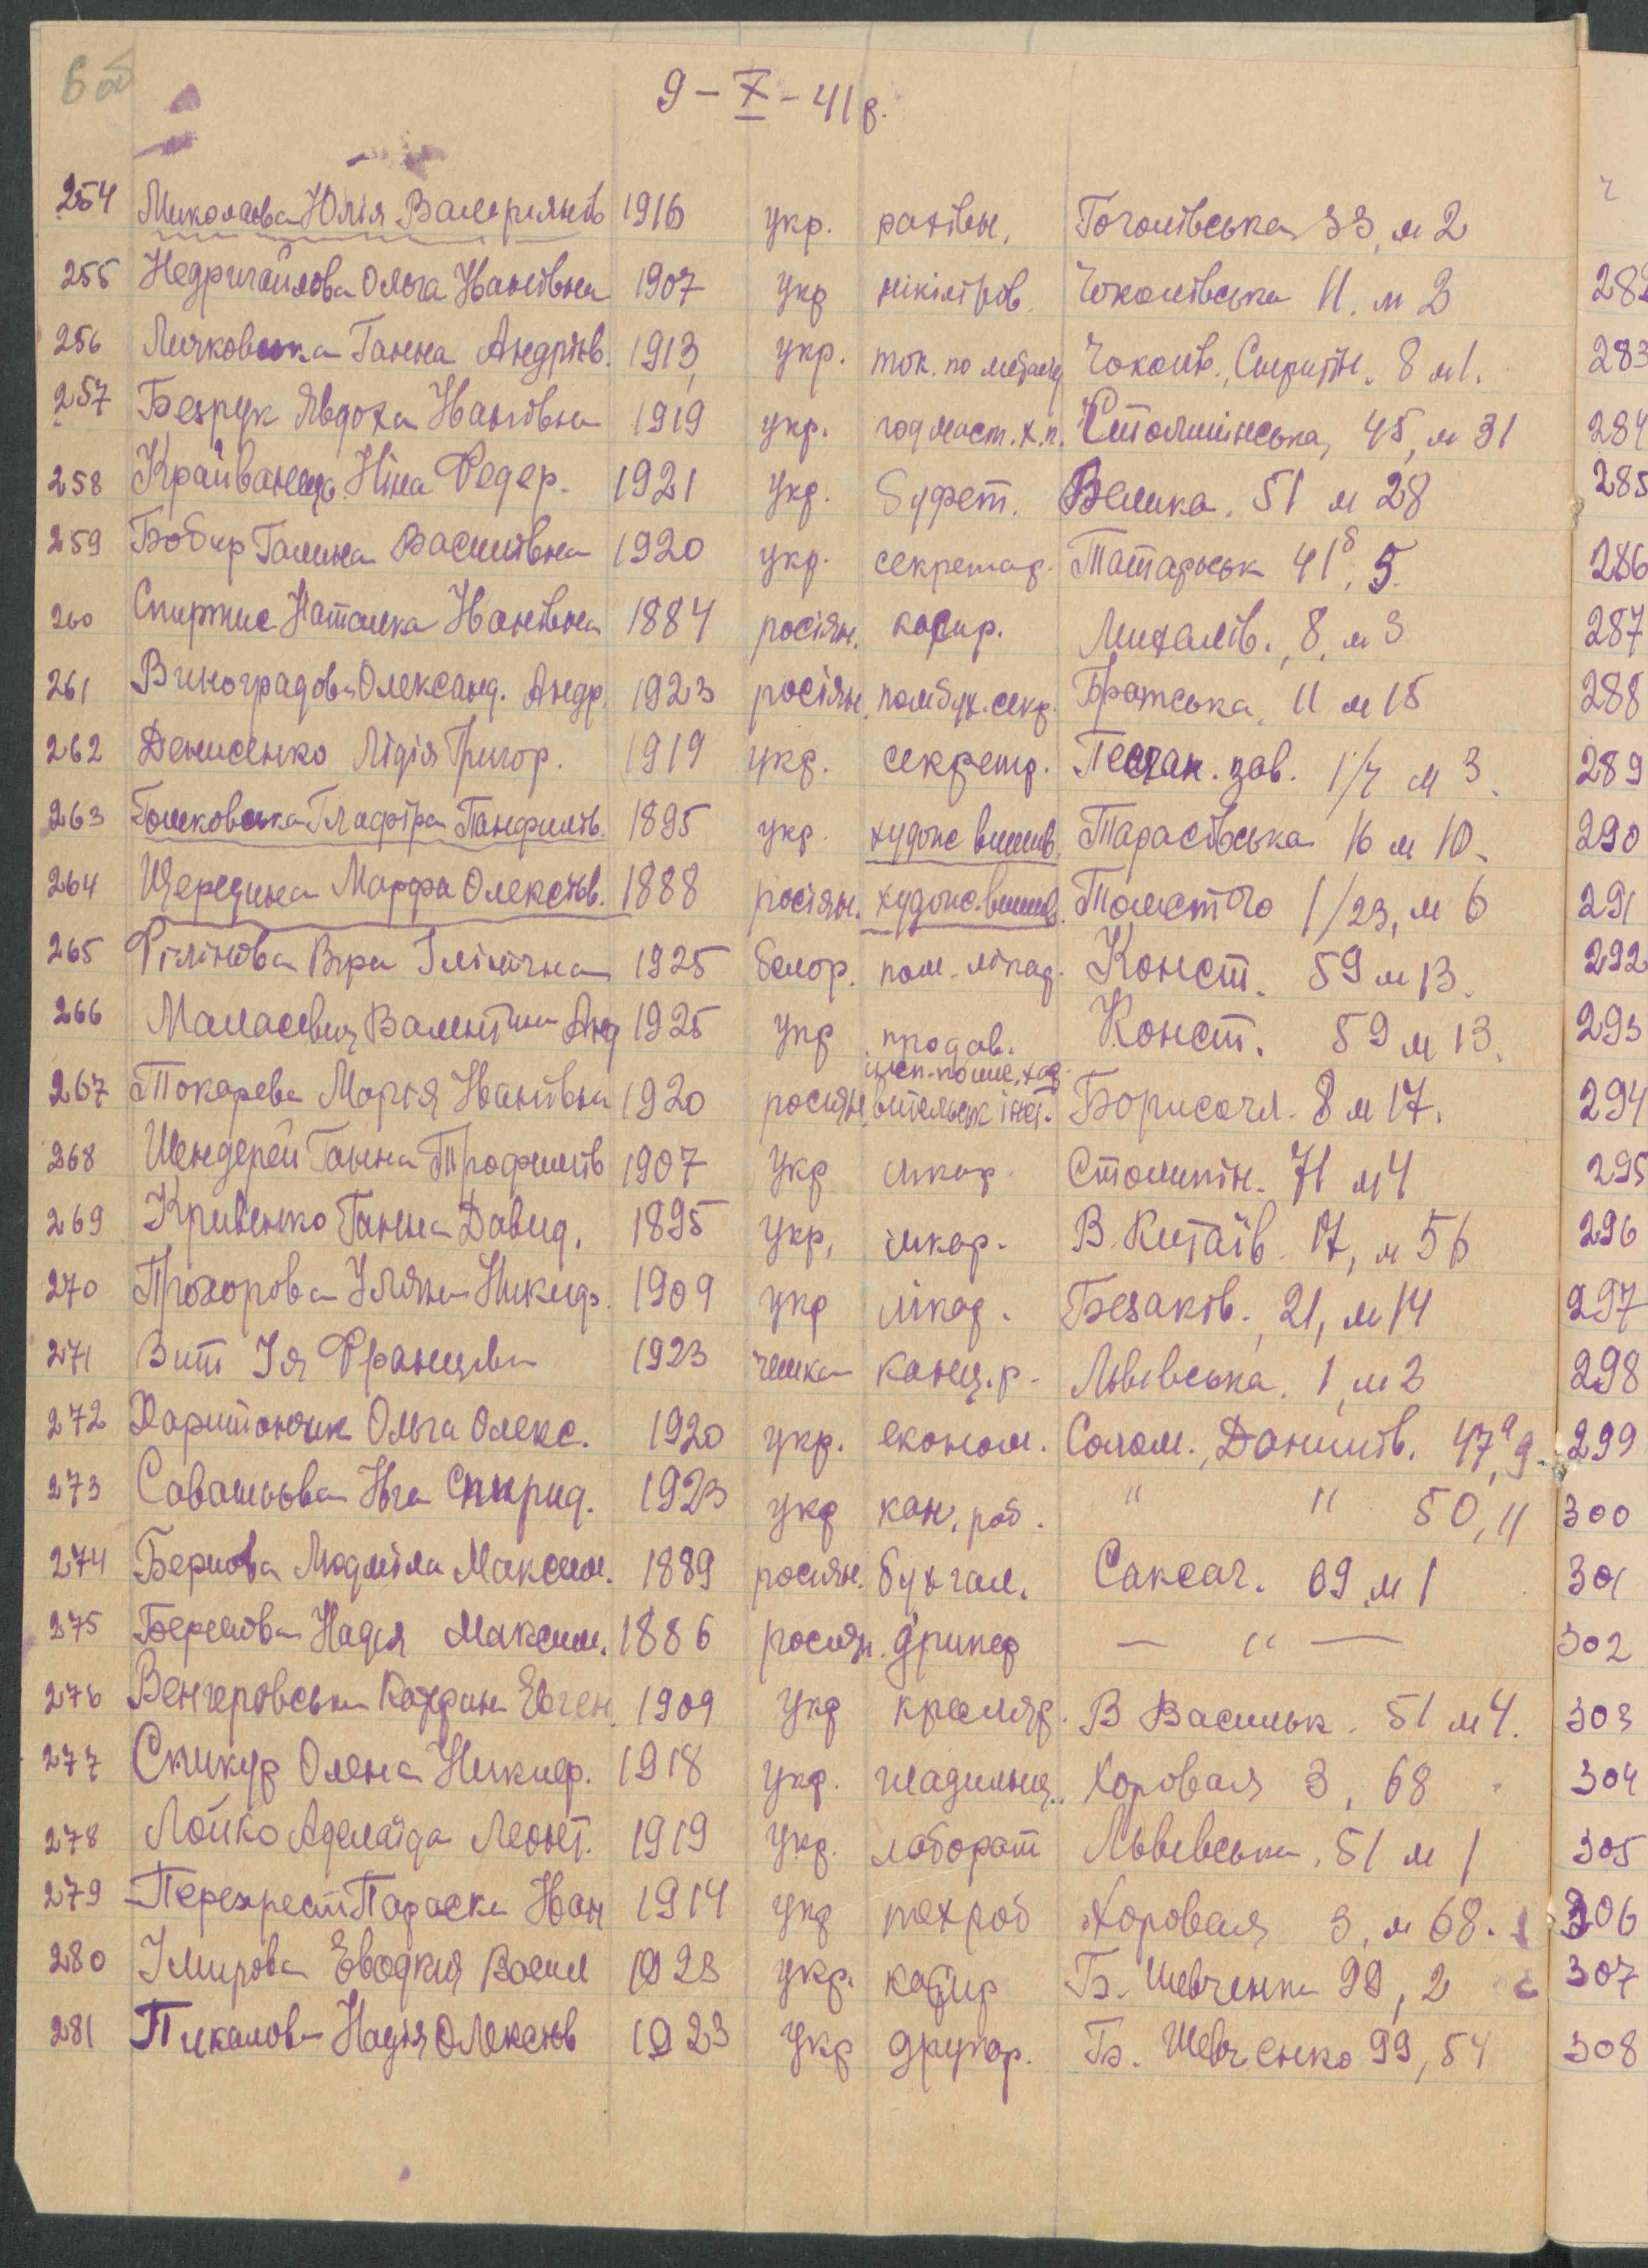 6 об
9 – X – 41 р.
254 Миколаєва Юлія Валеріянів 1916 укр. рахівн. Гоголівська 33, м 2
255 Недригайлова Ольга Іванівна 1907 укр нікіліров. Чоколівська 11. м 2
256 Личковська Ганна Андріїв. 1913, укр. ток. по металу Чоколів., 8 м 1.
257 Безрук Явдоха Іванівна 1919 укр. Столипінська, 45, м 31
258 Ніна Федер. 1921 укр. буфет. Велика. 51 м 28
259 Бобир Галина Василівна 1920 укр. секретар. Татарськ 41б, 5.
260 Наталка Іванівна 1884 росіян. касир. Михалів., 8, м 3
261 Виноградова Олександ. Андр. 1923 росіян. помбух. секр. Братська, 11 м 15
262 Денисенко Лідія Григор. 1919 укр. секретр. зав. 1/7 м 3.
263 Глафіра Панфилів. 1895 укр. худож вишив. Тарасівська 16 м 10.
264 Марфа Олексіїв. 1888 росіян. худож. вишив. Толстого 1/23, м 6
265 Філінова Віра Іллінічна 1925 белор. пом. лікар. Конст. 59 м 13.
266 Маласевич Валентина Анд 1925 укр продав. Конст. 59 м 13.
267 Токарева Марія Іванівна 1920 росіян. інст. Борисогл. 8 м 17.
268 Шендерей Ганна Трофимів 1907 укр лікар. Столипін. 71 м 4
269 Кривенко Ганна Давид. 1895 укр, лікар. В. Китаїв. 17, м 56
270 Прохорова Уляна Никиф. 1909 укр лікар. Безаків., 21, м 14
271 Вит Ія Францівн 1923 чешка канц. р. Львівська, 1, м 2
272 Харитончик Ольга Олекс. 1920 укр. економ. Солом., Данилів. 47а, 9.
273 Спирид. 1923 укр кан. роб. " " 50, 11
274 Людміла Максим. 1889 росіян. бухгал. Саксаг. 69 м 1
275 Надія Максим. 1886 росіян. — " —
276 Венгеровська Євген. 1909 укр кресляр. В Васильк. 51 м 4.
277 Олена Никиф. 1918 укр. гладильщ. Хоровая 3, 68
278 Лойко Аделаїда Леонт. 1919 укр. лаборат Львівська, 51 м 1
279 Перехрест Параска Іван 1914 укр техроб Хоровая 3, м 68.
280 Евдокия Васил 1923 укр. касир Б. Шевченка 99, 2
281 Пикалова Надія Олексіїв 1923 укр друкар. Б. Шевченко 99, 54
283
284
285
286
287
288
289
290
291
292
293
294
295
296
297
298
299
300
301
302
303
304
305
306
307
308